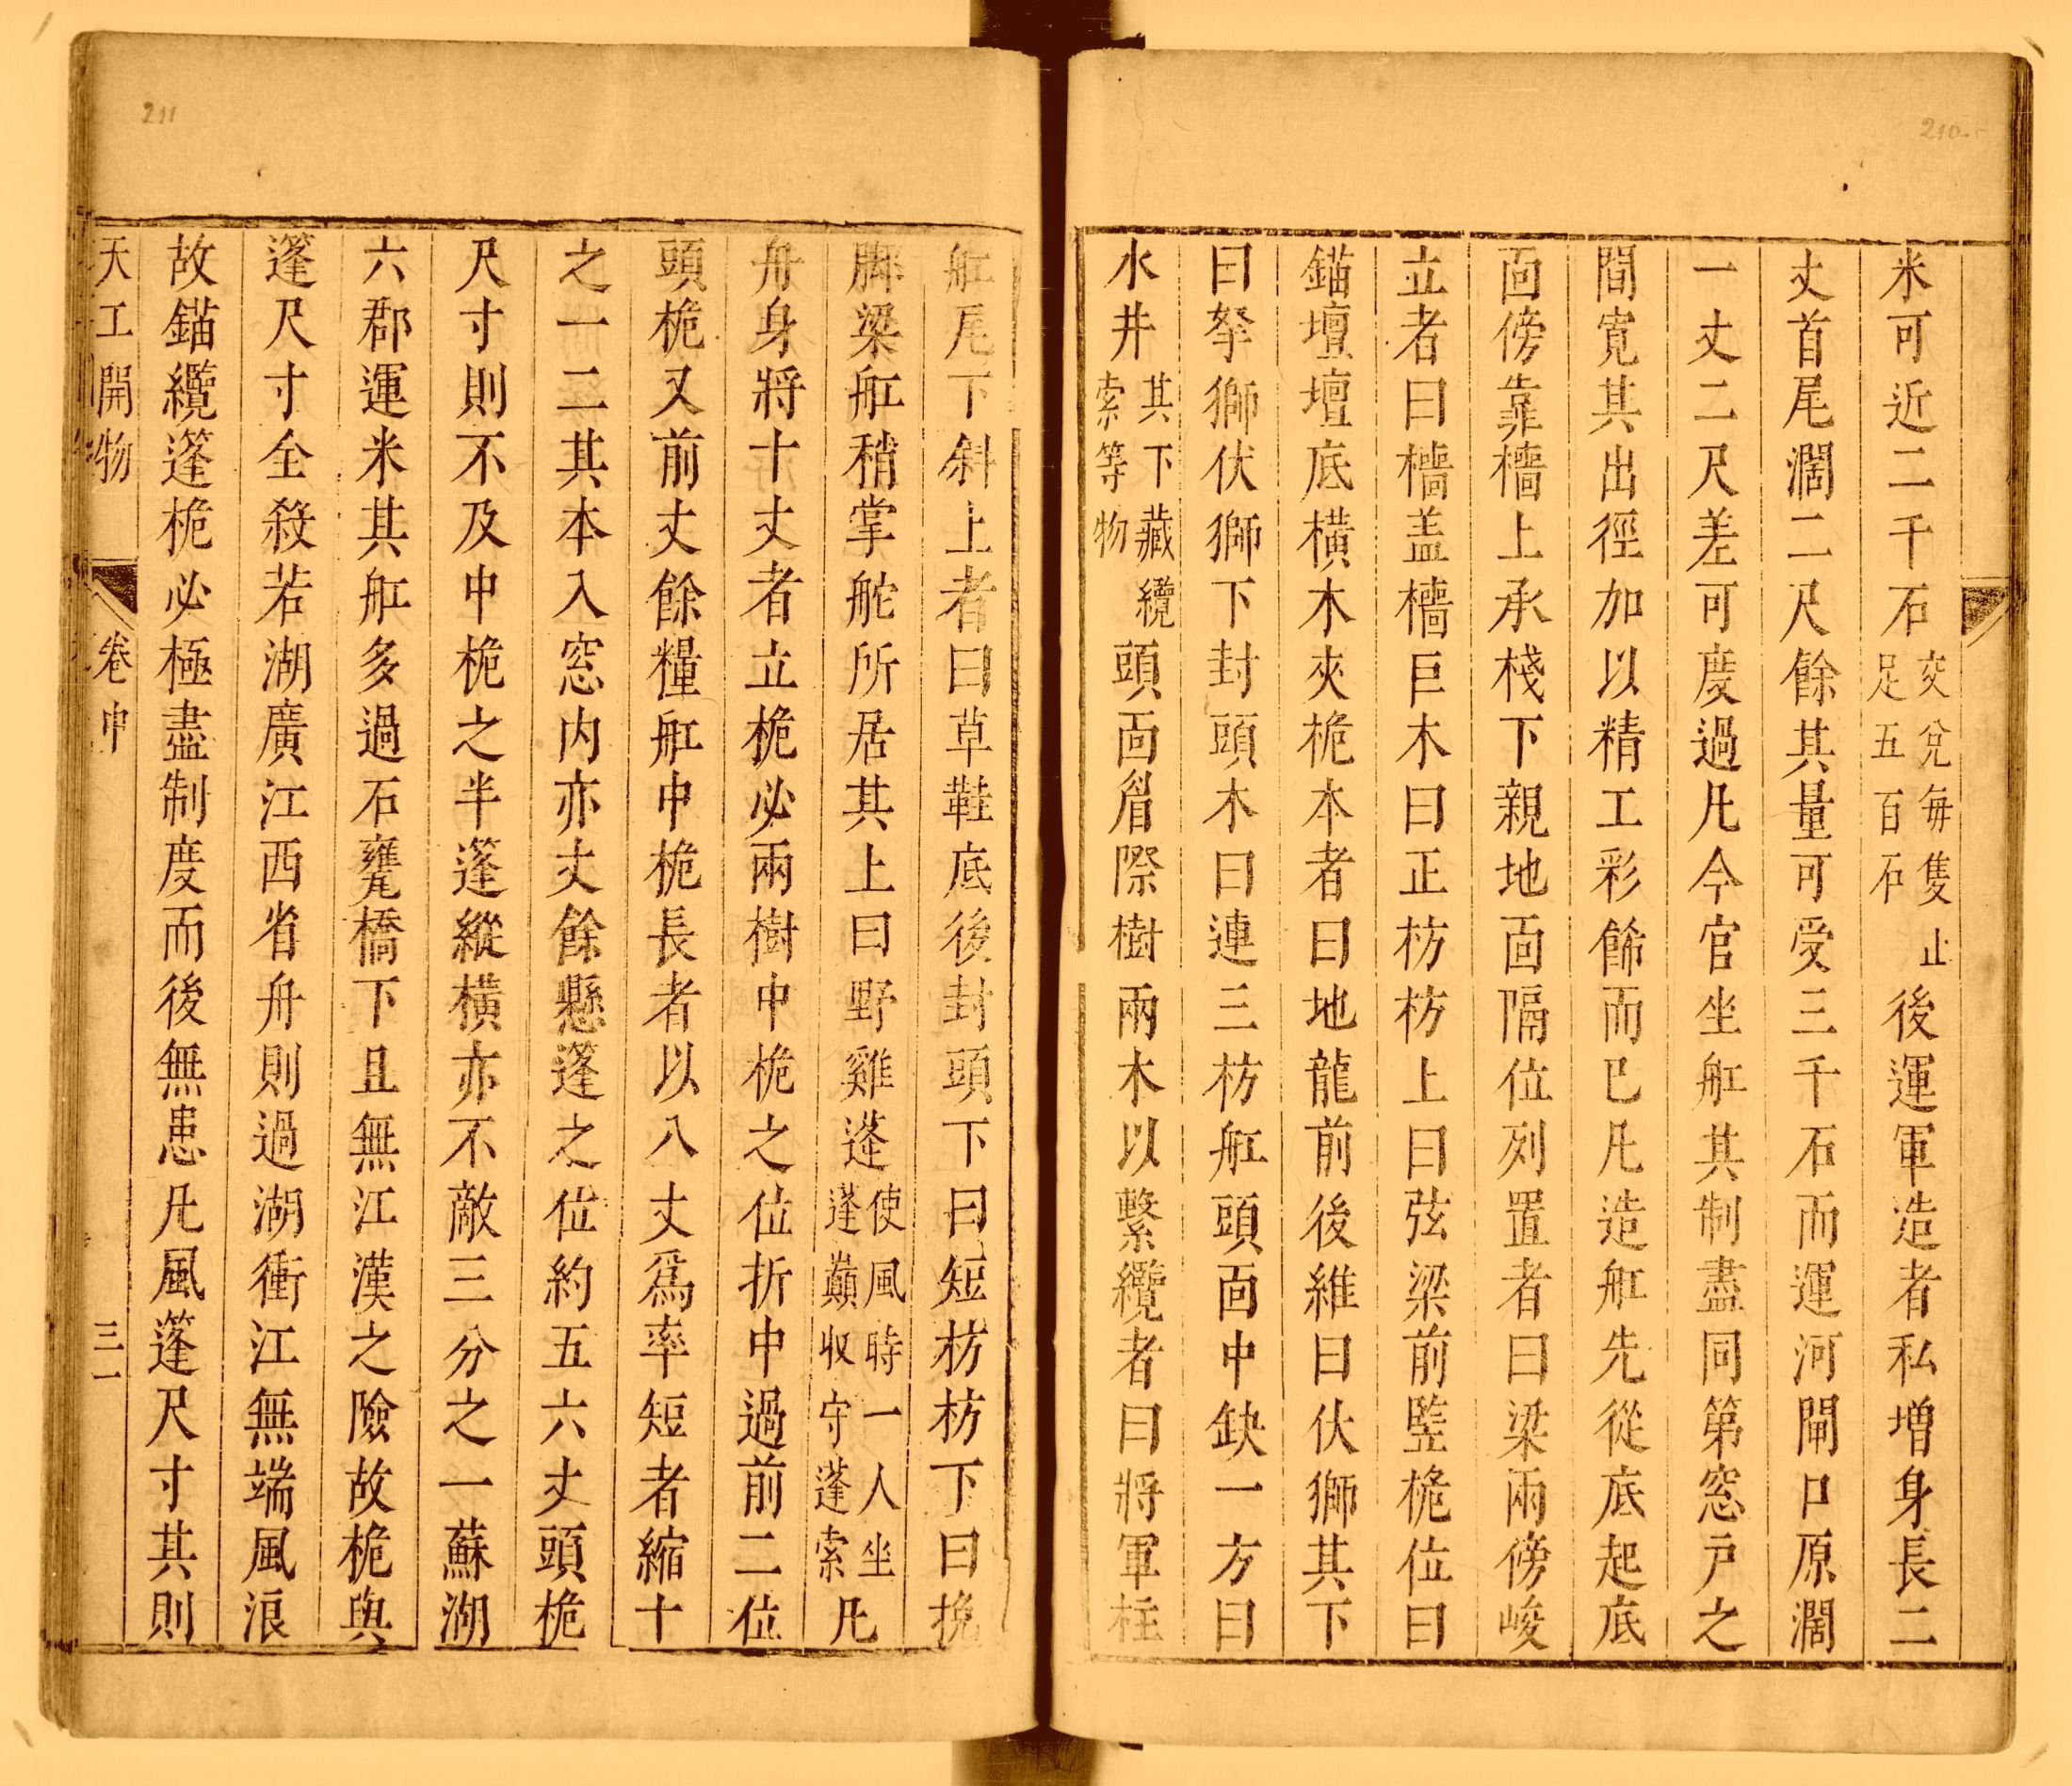 210
米可近二千石交兌每隻止足五百石後運軍造者私增身長二
丈首尾濶二尺餘其量可受三千石而運河閘口原濶
一丈二尺差可度過凡今官坐舡其制盡同第窓戸之
間寛其出徑加以精工彩餙而已凡造舡先從底起底
靣傍靠檣上承棧下親地靣隔位列置者曰梁兩傍峻
立者曰檣盖檣巨木曰正枋枋上曰弦梁前竪桅位曰
錨壇壇底橫木夾桅本者曰地龍前後維曰伏獅其下
曰拏獅伏獅下封頭木曰連三枋舡頭靣中缺一方曰
水井其下藏纜索等物頭靣眉際樹兩木以繫纜者曰將軍柱
211
舡尾下斜上者曰草鞋底後封頭下曰短枋枋下曰挽
脚梁舡稍掌舵所居其上曰野雞篷使風時一人坐篷巔収守篷索凡
舟身將十丈者立桅必兩樹中桅之位折中過前二位
頭桅又前丈餘糧舡中桅長者以八丈爲率短者縮十
之一二其本入窓内亦丈餘懸篷之位約五六丈頭桅
尺寸則不及中桅之半篷縱橫亦不敵三分之一蘇湖
六郡運米其舡多過石甕橋下且無江漢之險故桅與
篷尺寸全殺若湖廣江西省舟則過湖衝江無端風浪
故錨纜篷桅必極盡制度而後無患凡風篷尺寸其則
天工開物 卷中 三一